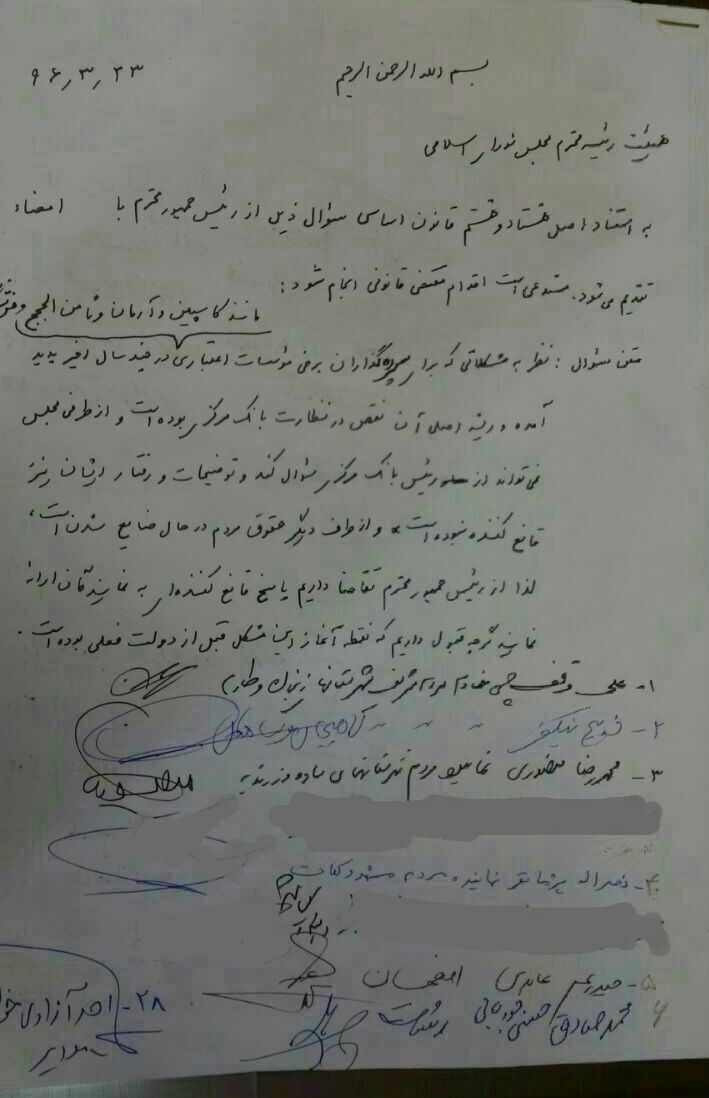 بسم الله الرحمن الرحیم
۹۶٫۳٫۲۳
هیئت رئیسه محترم مجلس شورای اسلامی
به استناد اصل هشتاد و هشتم قانون اساسی سؤال ذیل از رئیس جمهور محترم با امضاء
تقدیم می‌شود. مستدعی است اقدام مقتضی قانونی انجام شود:
مانند کاسپین و آرمان و ثامن الحجج و
متن سؤال: نظر به مشکلاتی که برای سپرده گذاران برخی مؤسسات اعتباری در چند سال اخیر پدید
آمده و ریشه اصلی آن نقص در نظارت بانک مرکزی بوده است و از طرفی مجلس
نمی‌تواند از رئیس بانک مرکزی سؤال کند و توضیحات و رفتار ایشان نیز
قانع کننده نبوده است و از طرف دیگر حقوق مردم در حال ضایع شدن است،
لذا از رئیس جمهور محترم تقاضا داریم پاسخ قانع کننده‌ای به نمایندگان ارائه
نمایند گرچه قبول داریم که نقطه آغاز این مشکل قبل از دولت فعلی بوده است.
۱- علی وقف چی خادم مردم شریف شهرستانهای زنجان و طارم
۲-
۳- محمدرضا منصوری نماینده مردم شهرستانهای ساوه و زرندیه
۴- نصراله پژمانفر نماینده مردم مشهد و کلات
۵- حیدرعلی عابدی اصفهان
۶ محمدصادق حسنی جوریانی رشت
۲۸- احد آزادی خواه
ملایر